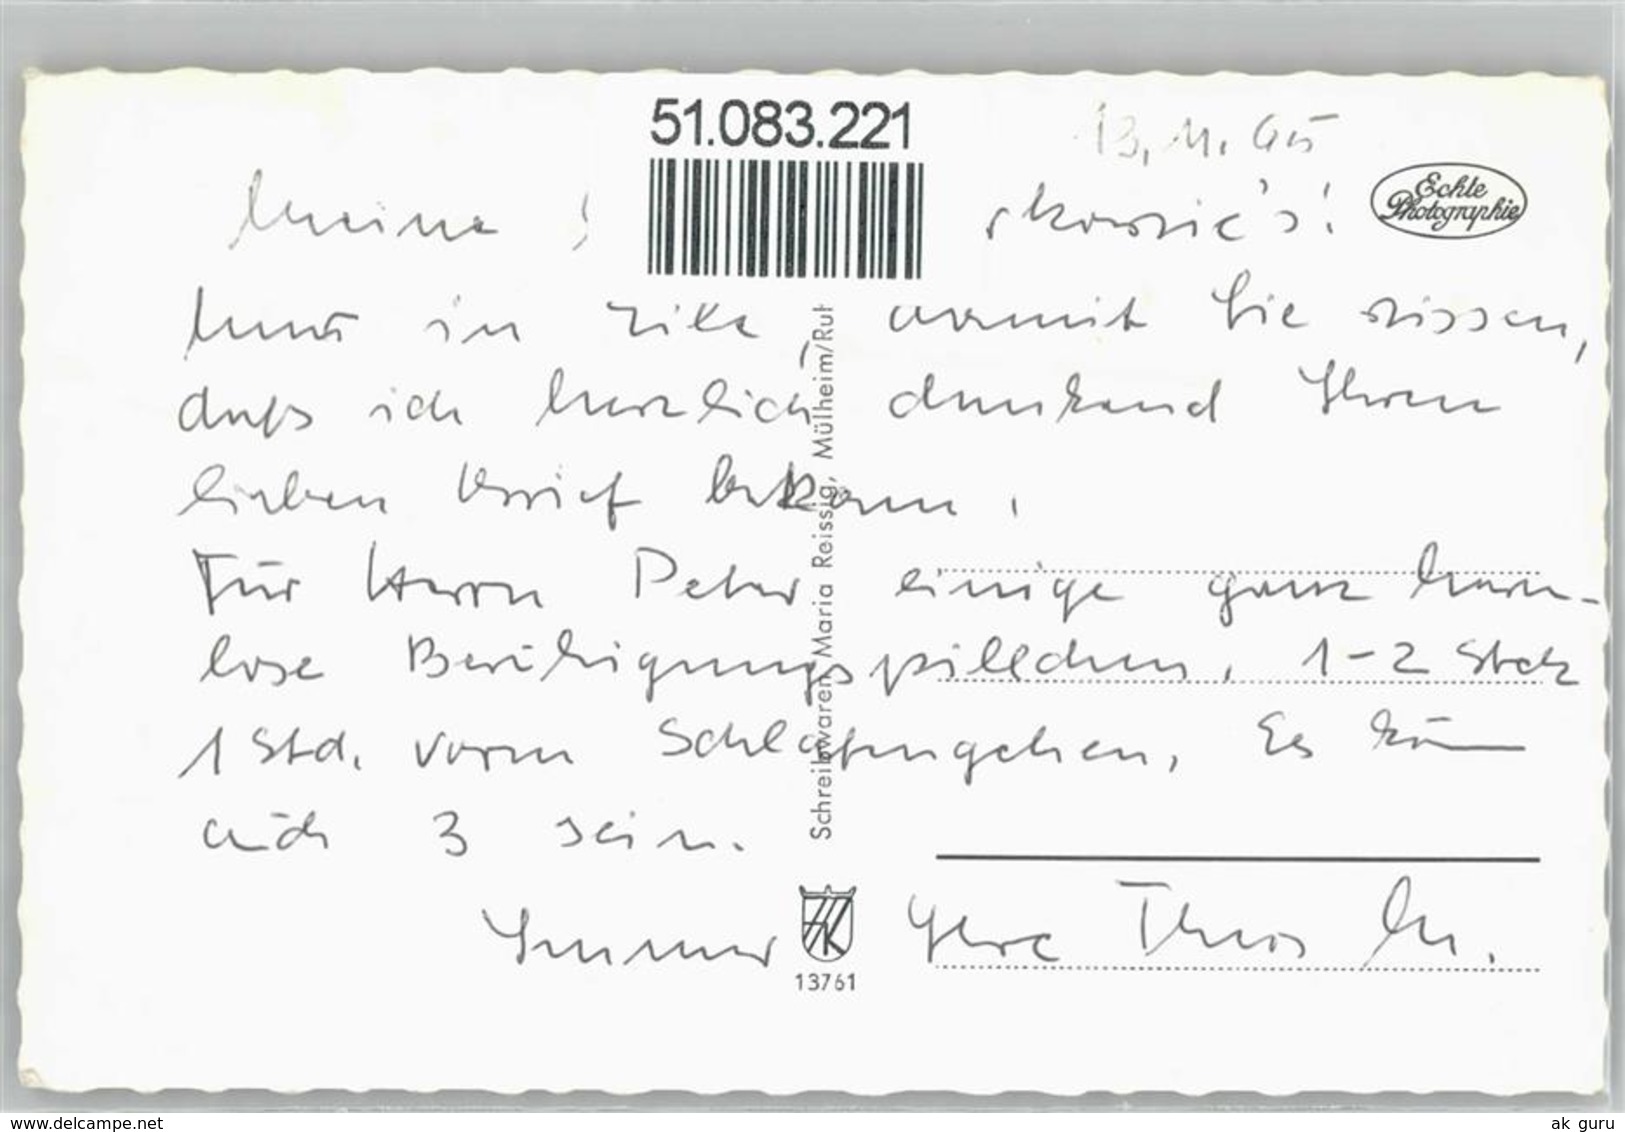 51.083.221
13.11.65
Echte
Photographie
Meine
Nur in Eile, damit Sie wissen,
daß ich herzlich dankend Ihren
lieben Brief bekam.
Für Herrn Peter einige ganz harm-
lose Beruhigungspillchen, 1-2 Stck
1 Std. vorm Schlafengehen, Es kann
auch 3 sein.
Immer Ihre
Schreibwaren Maria Reissig, Mülheim/Ruh
13761
www.delcampe.net
ak guru